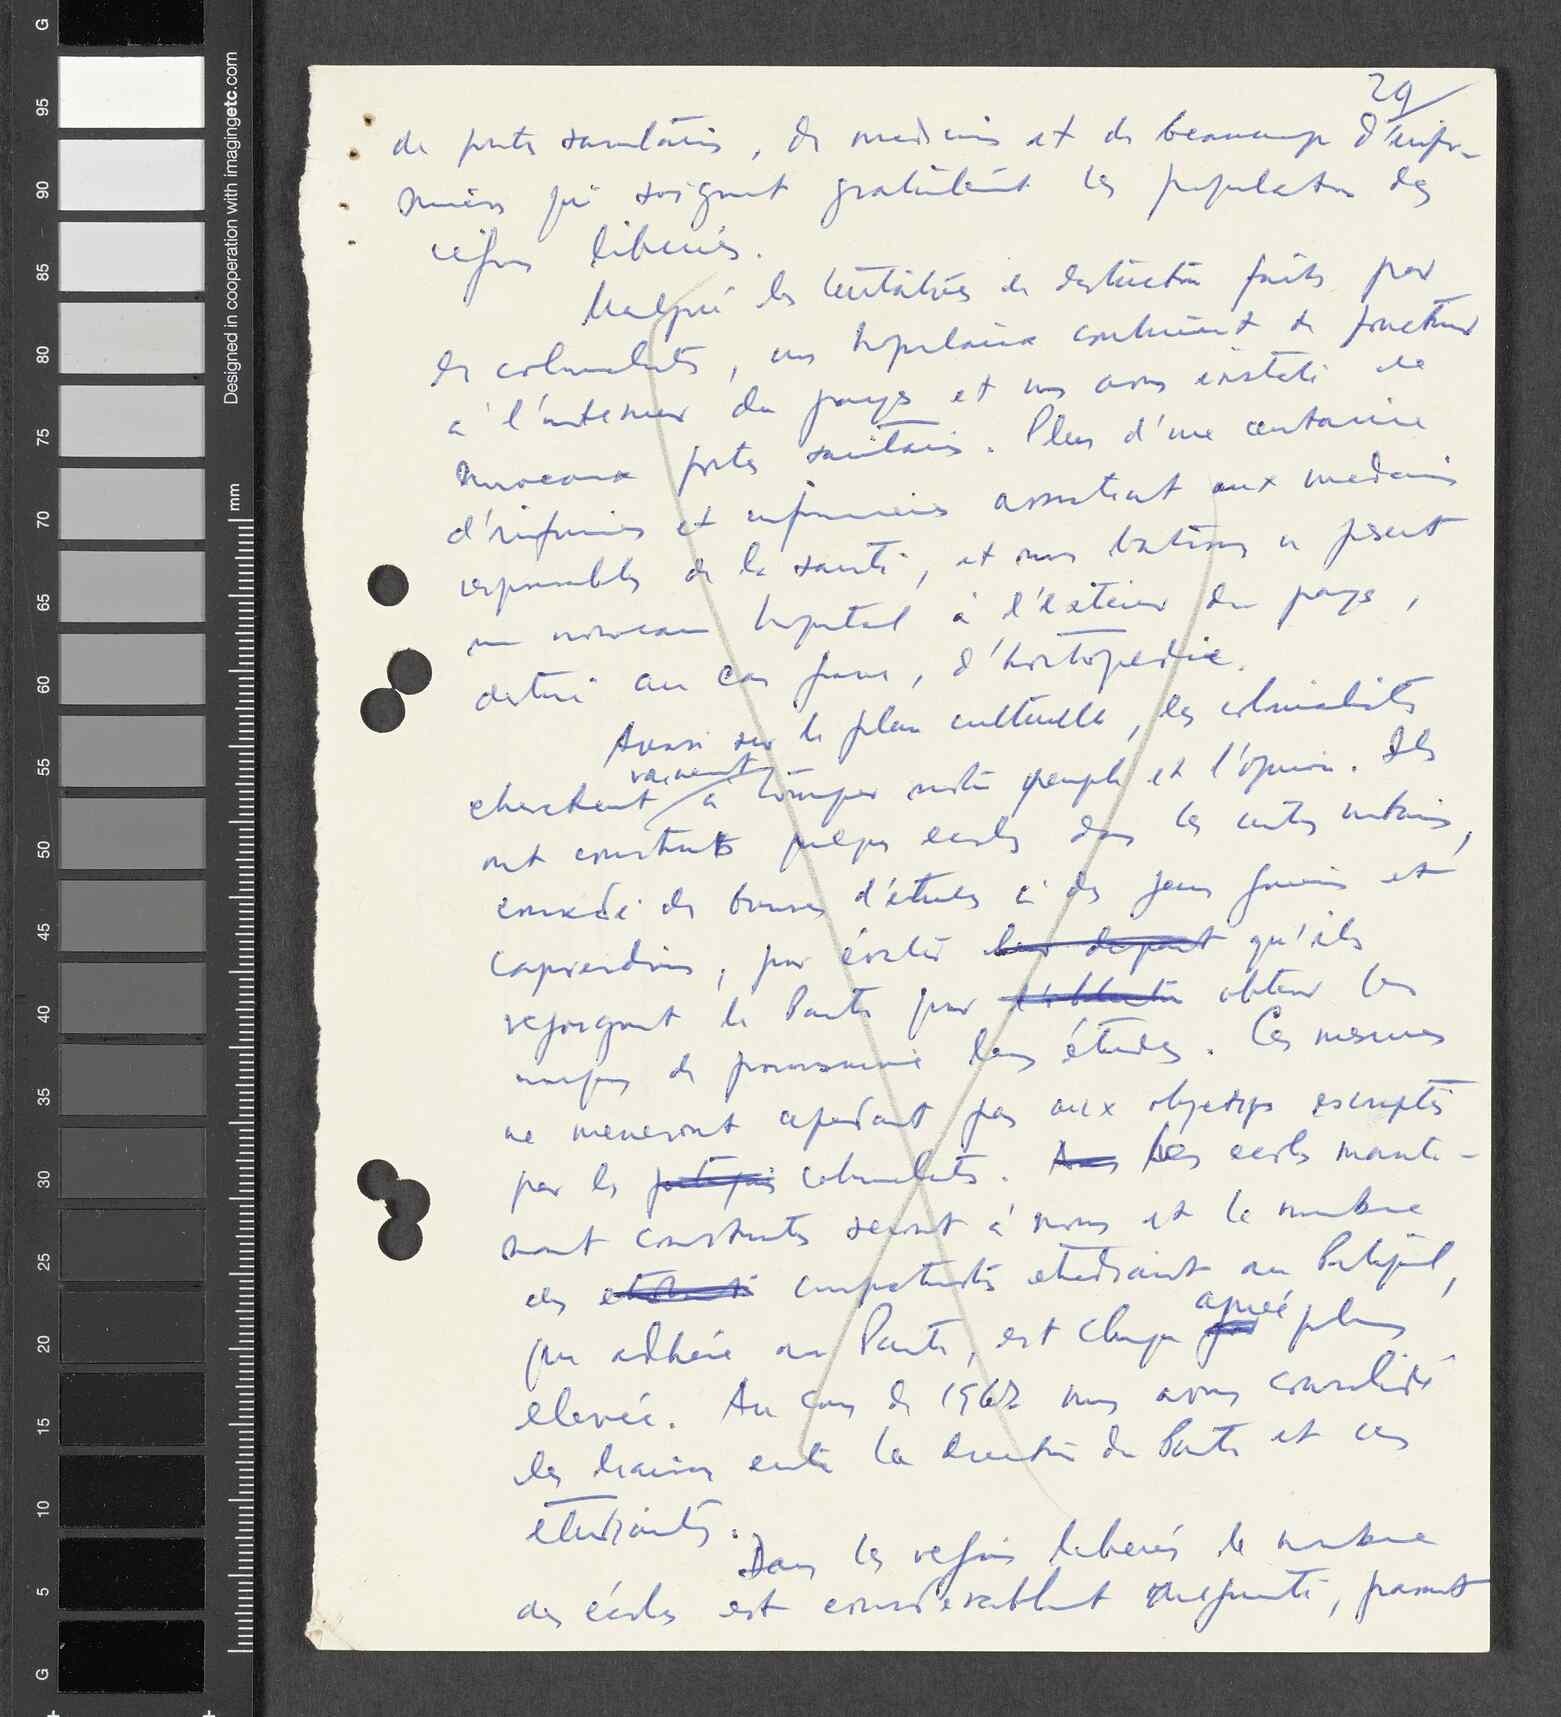 29
de postes sanitaires, de medecins et de beaucoup d'infir-
miers qui soignent gratuitement les populations des
régions liberées.
Malgré les tentatives de destruction faites par
les colonialistes, nos hopitaux continuent de fonctionner
à l'interieur du pays et nous avons installé de
nouveaux postes sanitaires. Plus d'une centaine
d'infirmiers et infirmieres assistent aux medecins
responsables de la santé, et nous batissons à present
un nouveau hopital à l'extérieur du pays,
destiné au cas graves, d'hortopedie.
Aussi sur le plan culturelle, les colonialistes
vainement
cherchent à tromper notre peuple et l'opinion. Ils
ont construits quelques ecoles dans les centres urbains,
concedé des bourses d'études à des jeunes guinéens et
capverdiens, pour éviter leur depart qu'ils
rejoignent le Parti pour obtenir les
moyens de poursuivre leurs études. Ces mesures
ne meneront cependant pas aux objetifs escomptés
par les portugais colonialistes. Les ecoles mainte-
nant construites seront à nous et le nombre
des etudiants compatriotes etudiant au Portugal,
qui adhère au Parti, est chaque
année plus
elevée. Au cours de 1967 nous avons consolidé
les liaisons entre la direction du Parti et ces
étudiants.
Dans les régions liberées le nombre
des écoles est considerablement augmenté, passant